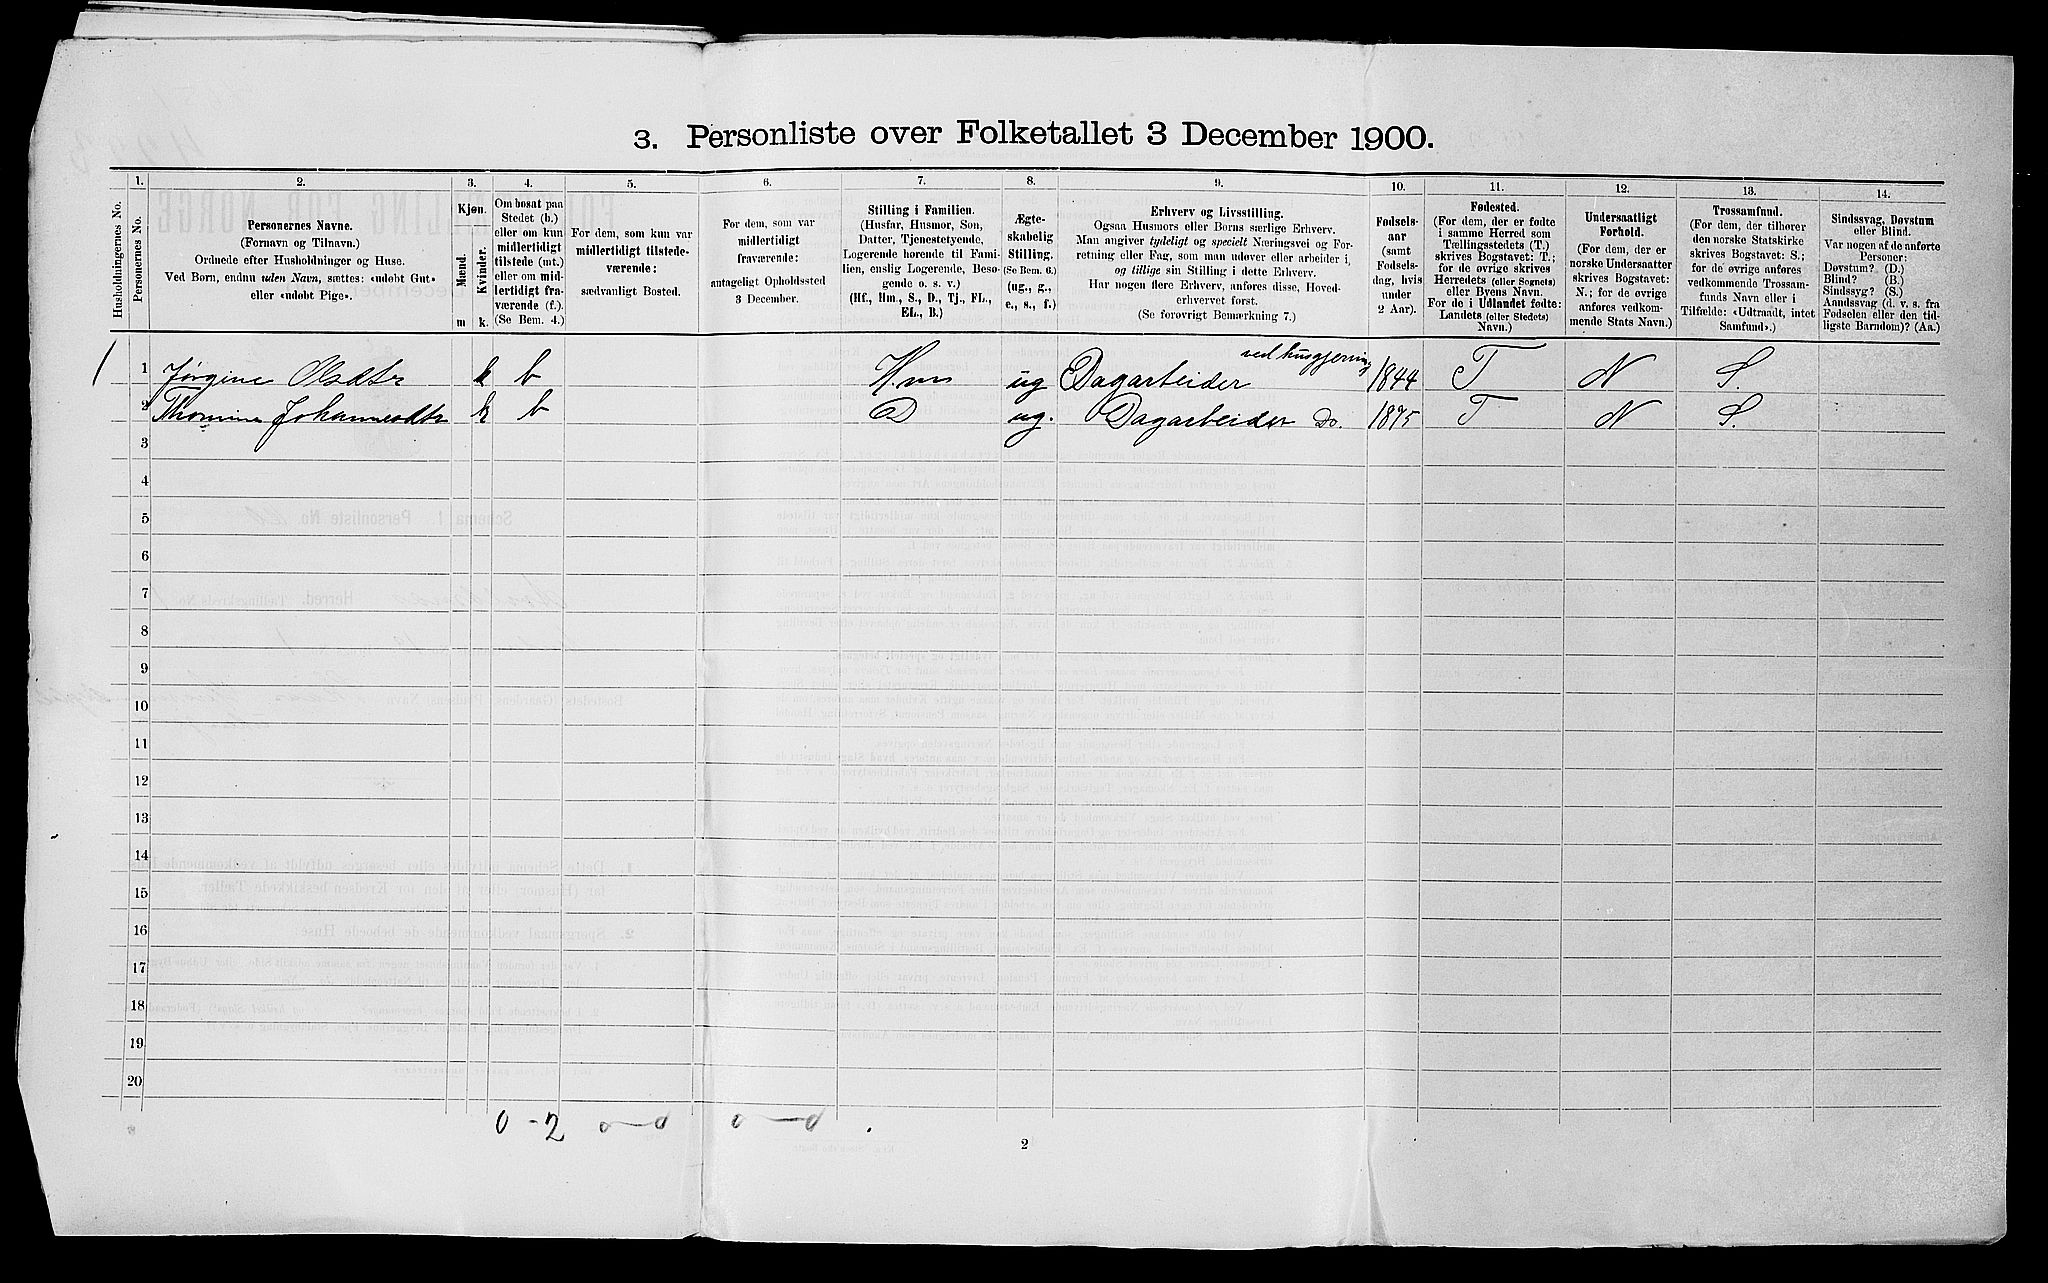 3. Personliste over Folketallet 3 December 1900.
Husholdningernes No.
1.
Personernes No.
2.
Personernes Navne.
(Fornavn og Tilnavn.)
Ordnede efter Husholdninger og Huse.
Ved Børn, endnu uden Navn, sættes: «udøbt Gut»
eller «udøbt Pige».
3.
Kjøn.
Mænd.
Kvinder.
m k.
4.
Om bosat paa
Stedet (b.)
eller om kun
midlertidigt
tilstede (mt.)
eller om mid-
lertidigt fra-
værende (f.)
(Se Bem. 4.)
5.
For dem, som kun var
midlertidigt tilstede-
værende:
sædvanligt Bosted.
6.
For dem, som var
midlertidigt
fraværende:
antageligt Opholdssted
3 December.
7.
Stilling i Familien.
(Husfar, Husmor, Søn,
Datter, Tjenestetyende,
Logerende hørende til Fami-
lien, enslig Logerende, Besø-
gende o. s. v.)
(Hf., Hm., S., D., Tj., FL.,
EL., B.)
8.
Ægte-
skabelig
Stilling.
(Se Bem. 6.)
(ug., g.,
e., s., f.)
9.
Erhverv og Livsstilling.
Ogsaa Husmors eller Børns særlige Erhverv.
Man angiver tydeligt og specielt Næringsvei og For-
retning eller Fag, som man udøver eller arbeider i,
og tillige sin Stilling i dette Erhverv.
Har nogen flere Erhverv, anføres disse, Hoved-
erhvervet først.
(Se forøvrigt Bemærkning 7.)
10.
Fødsels-
aar
(samt
Fødsels-
dag, hvis
under
2 Aar).
11.
Fødested.
(For dem, der er fødte
i samme Herred som
Tællingsstedets (T.)
skrives Bogstavet: T.;
for de øvrige skrives
Herredets (eller Sognets)
eller Byens Navn.
For de i Udlandet fødte:
Landets (eller Stedets)
Navn.)
12.
Undersaatligt
Forhold.
(For dem, der er
norske Undersaatter
skrives Bogstavet:
N.; for de øvrige
anføres vedkom-
mende Stats Navn.)
13.
Trossamfund.
(For dem, der tilhører
den norske Statskirke
skrives Bogstavet: S.;
for de øvrige anføres
vedkommende Trossam-
funds Navn eller i
Tilfælde: «Udtraadt, intet
Samfund».)
14.
Sindssvag, Døvstum
eller Blind.
Var nogen af de anførte
Personer:
Døvstum? (D.)
Blind? (B.)
Sindssyg? (S.)
Aandssvag (d. v. s. fra
Fødselen eller den tid-
ligste Barndom)? (Aa.)
1 1 Jørgine Olsdtr k b Hm ug Dagarbeider ved husgjerning 1844 T N S.
2 Thomine Johannesdtr k b D ug. Dagarbeider Do. 1875 T N S.
3
4
5
6
7
8
9
10
11
12
13
14
15
16
17
18
19
20
0 - 2 0-0 0-0
2